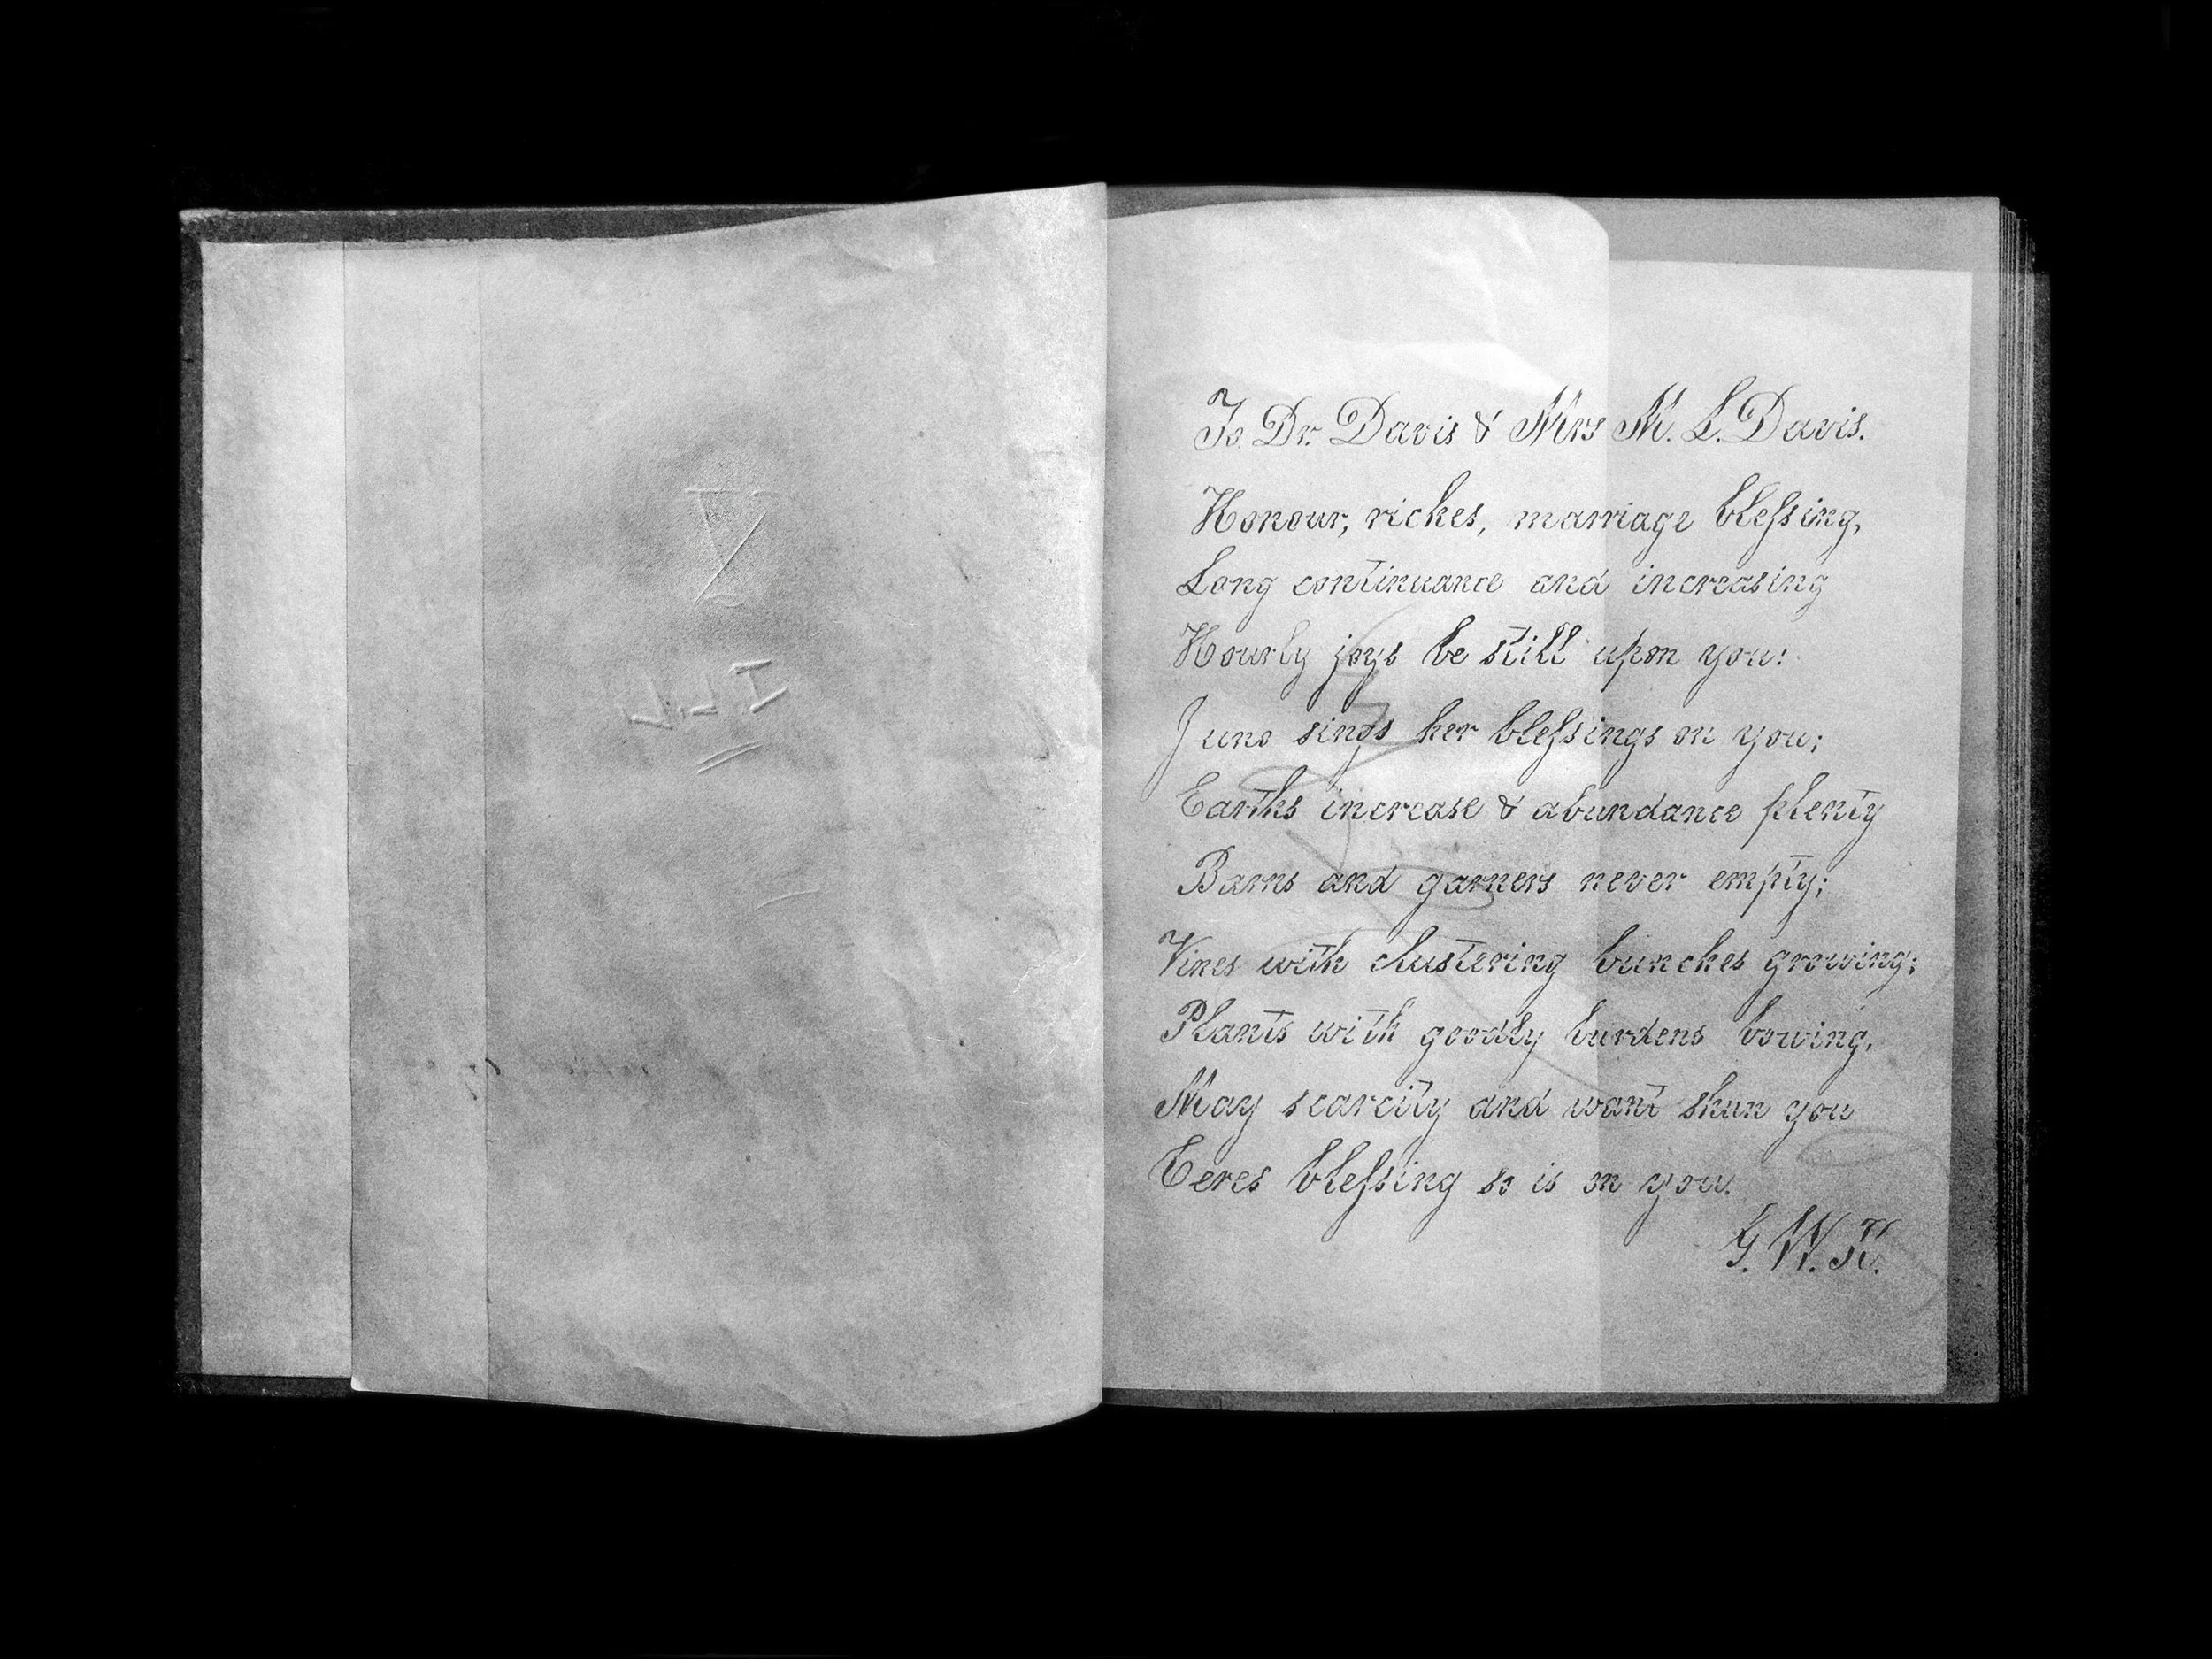 To Dr. Davis & Mrs M. L. Davis.
Honour, riches, marriage blefsing,
Long continuance and increasing
Hourly joys be still upon you:
Juno sings her blefsings on you;
Earths increase & abundance plenty
Barns and garners never empty;
Vines with clustering bunches growing;
Plants with goodly burdens bowing,
May scarcity and want shun you
Ceres blefsing so is on you.
G. W. K.